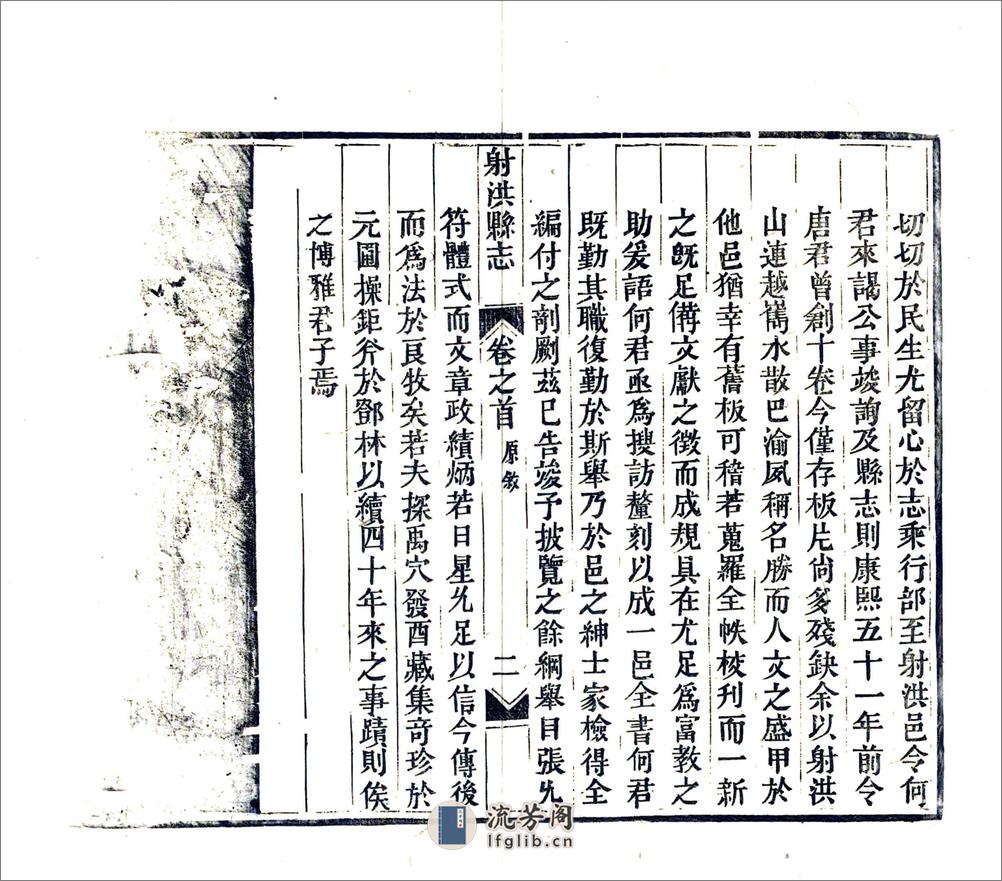 切切於民生尤留心於志乘行部至射洪邑令何
君來謁公事竣詢及縣志則康熙五十一年前令
唐君曾創十卷今僅存板片尚多殘缺余以射洪
山連越嶲水散巴渝夙稱名勝而人文之盛甲於
他邑猶幸有舊板可稽若蒐羅全帙梭刋而一新
之旣足備文獻之徵而成規具在尤足爲富教之
助爰語何君亟爲搜訪釐刻以成一邑全書何君
既勤其職復勤於斯舉乃於邑之紳士家檢得全
編付之剞劂茲已告竣予披覽之餘綱舉目張允
射洪縣志 卷之首 原敘 二
符體式而文章政績炳若日星允足以信今傳後
而爲法於良牧矣若夫探禹穴發酉藏集奇珍於
元圃操鉅斧於鄧林以續四十年來之事蹟則俟
之博雅君子焉
流芳阁
lfglib.cn